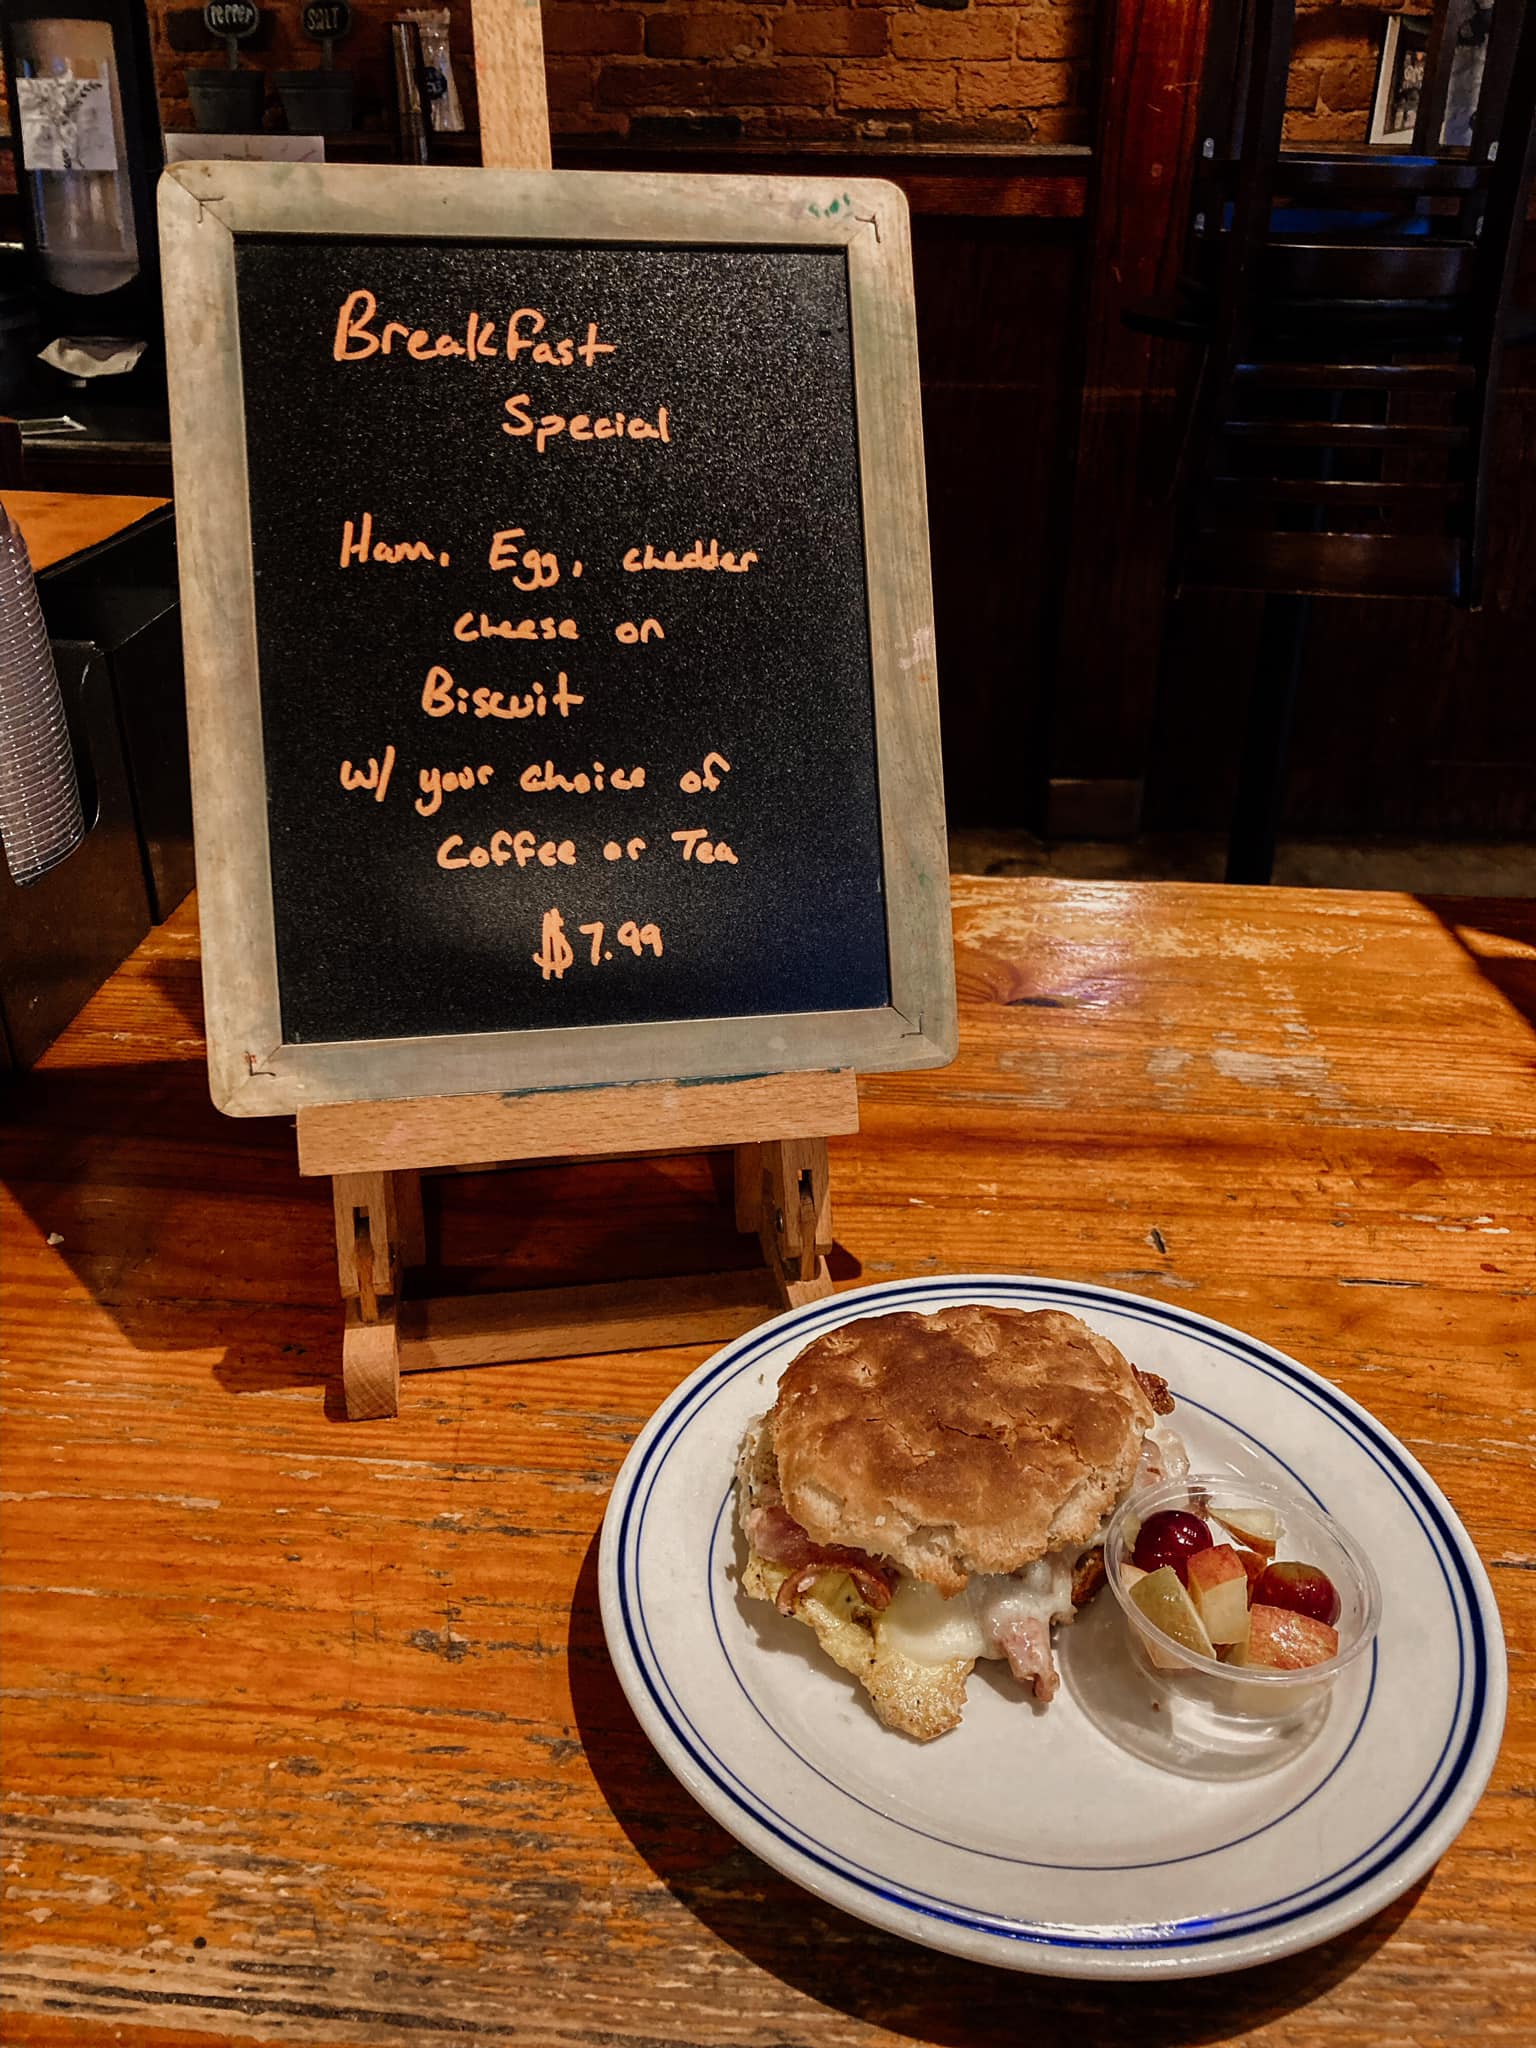 PePPeR
SALT
Breakfast
Special
Ham, Egg, cheddar
cheese on
Biscuit
w/ your choice of
Coffee or Tea
$7.99